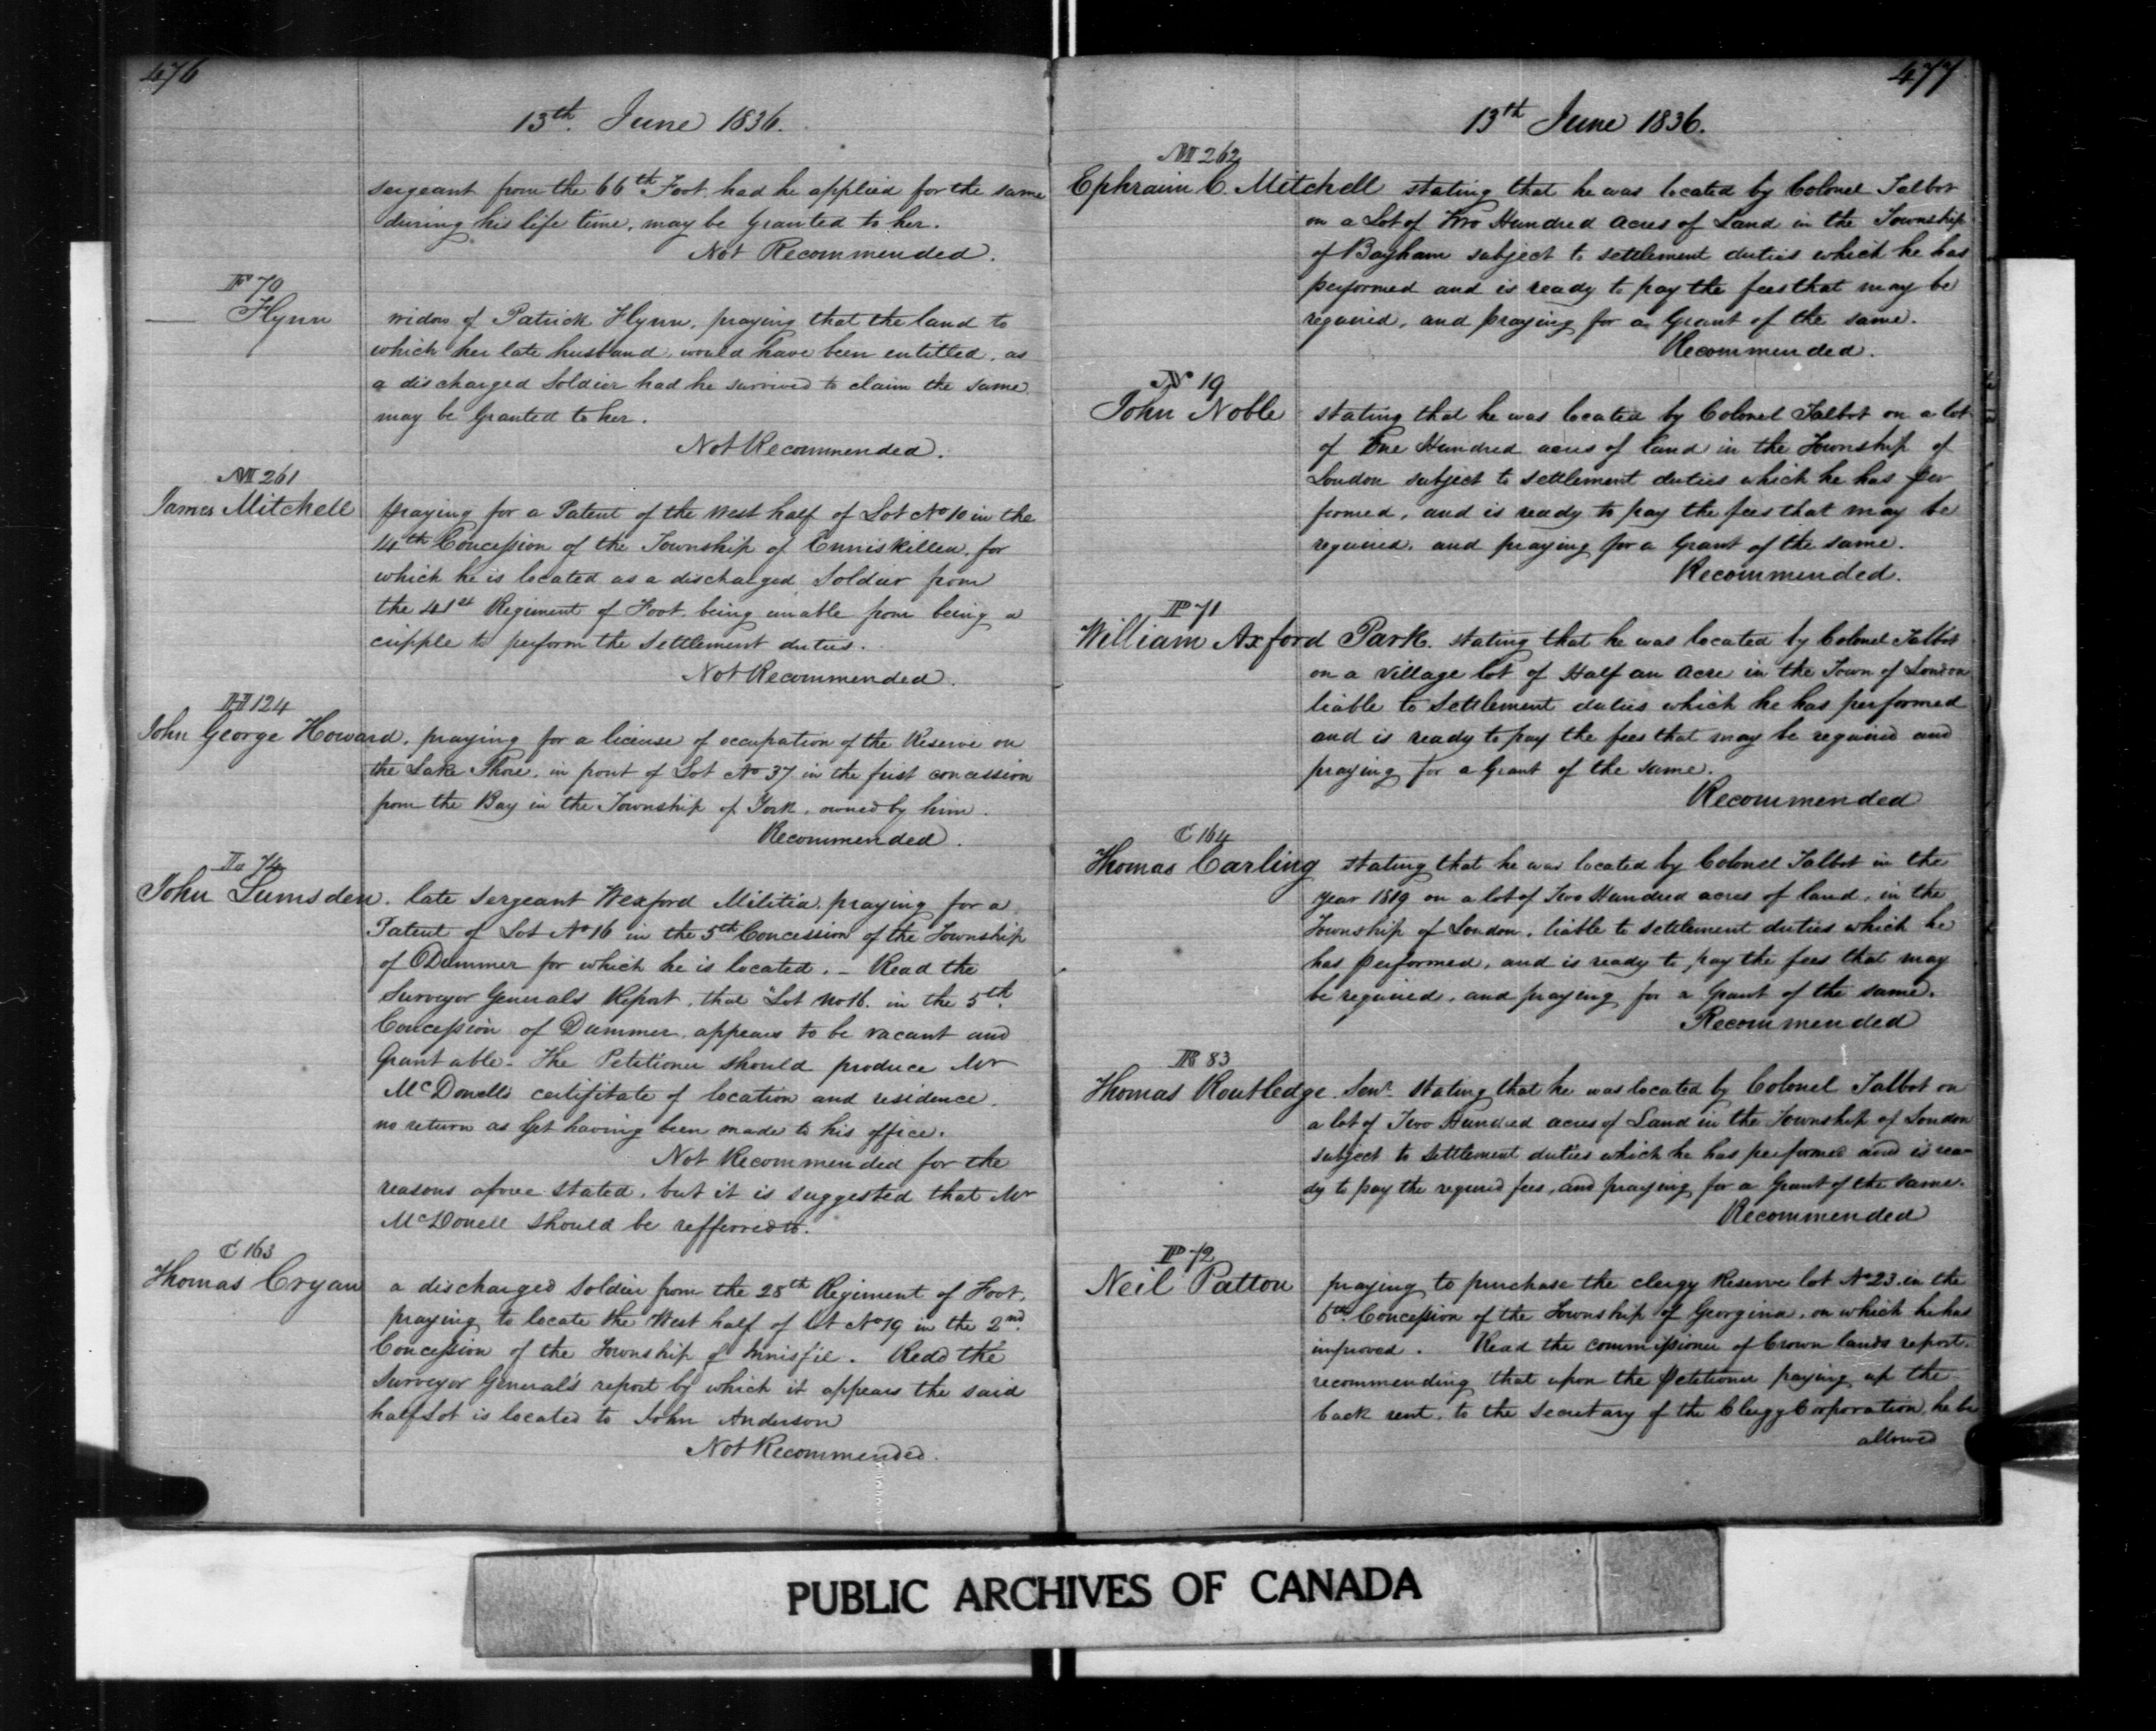 476
13th. June 1836.
sergeant from the 66th Foot, had he applied for the same
during his life time, may be Granted to her.
Not Recommended.
F 70
— Flynn widow of Patrick Flynn, praying that the land to
which her late husband would have been entitled, as
a discharged Soldier had he survived to claim the same
may be Granted to her.
Not Recommended.
M 261
James Mitchell praying for a Patent of the West half of Lot No 10 in the
14th Concession of the Township of Enniskillen, for
which he is located as a discharged Soldier from
the 41st Regiment of Foot, being unable from being a
cripple to perform the Settlement duties.
Not Recommended.
H 124
John George Howard, praying for a license of occupation of the Reserve on
the Lake Shore, in front of Lot No 37 in the first concession
from the Bay in the Township of York, owned by him.
Recommended.
L 74
John Lumsden. late Sergeant Wexford Militia, praying for a
Patent of Lot No 16 in the 5th Concession of the Township
of Dummer for which he is located. – Read the
Surveyor Generals Report, that "Lot No 16. in the 5th.
Concession of Dummer, appears to be vacant and
Grantable – The Petitioner should produce Mr
McDonells certifitate of location and residence,
no return as yet having been made to his office.
Not Recommended for the
reasons above stated, but it is suggested that Mr
McDonell should be refferred to.
C 163
Thomas Cryan a discharged Soldier from the 28th Regiment of Foot,
praying to locate the West half of lot No 19 in the 2nd.
Concession of the Township of Innisfil. Read the
Surveyor General's report by which it appears the said
half Lot is located to John Anderson
Not Recommended.
477
13th June 1836.
M 262
Ephraim C. Mitchell stating that he was located by Colonel Talbot
on a Lot of Two Hundred acres of Land in the Township
of Bayham subject to settlement duties which he has
performed and is ready to pay the fees that may be
required, and praying for a Grant of the same.
Recommended.
N 19
John Noble stating that he was located by Colonel Talbot on a lot
of One Hundred acres of land in the Township of
London subject to settlement duties which he has per
formed, and is ready to pay the fees that may be
required, and praying for a Grant of the same.
Recommended.
P 71
William Axford Park. stating that he was located by Colonel Talbot
on a Village lot of Half an Acre in the Town of London
liable to Settlement duties which he has performed
and is ready to pay the fees that may be required and
praying for a Grant of the same.
Recommended
C 164
Thomas Carling stating that he was located by Colonel Talbot in the
year 1819 on a lot of Two Hundred acres of land, in the
Township of London, liable to settlement duties which he
has performed, and is ready to pay the fees that may
be required, and praying for a Grant of the same.
Recommended
R 83
Thomas Routledge Senr. stating that he was located by Colonel Talbot on
a lot of Two Hundred acres of Land in the Township of London
subject to settlement duties which he has performed and is rea-
dy to pay the required fees, and praying for a Grant of the same.
Recommended
P 72
Neil Patton praying to purchase the clergy Reserve lot No 23. in the
6th Concession of the Township of Georgina, on which he has
improved. Read the commissioner of Crown lands report,
recommending that upon the Petitioner paying up the
back rent, to the Secretary of the Clergy Corporation, he be
allowed
PUBLIC ARCHIVES OF CANADA